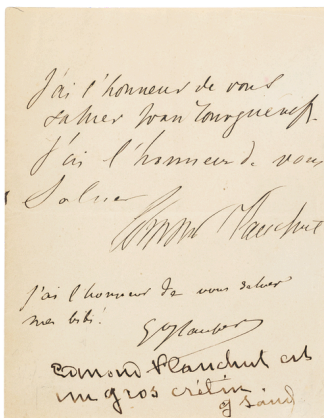 J'ai l'honneur de vous
saluer Ivan Tourgueneff.
J'ai l'honneur de vous
Saluer
Edmond Plauchut
j'ai l'honneur de vous saluer
mes bibi.
G Flaubert
Edmond Plauchut est
un gros crétin
G Sand